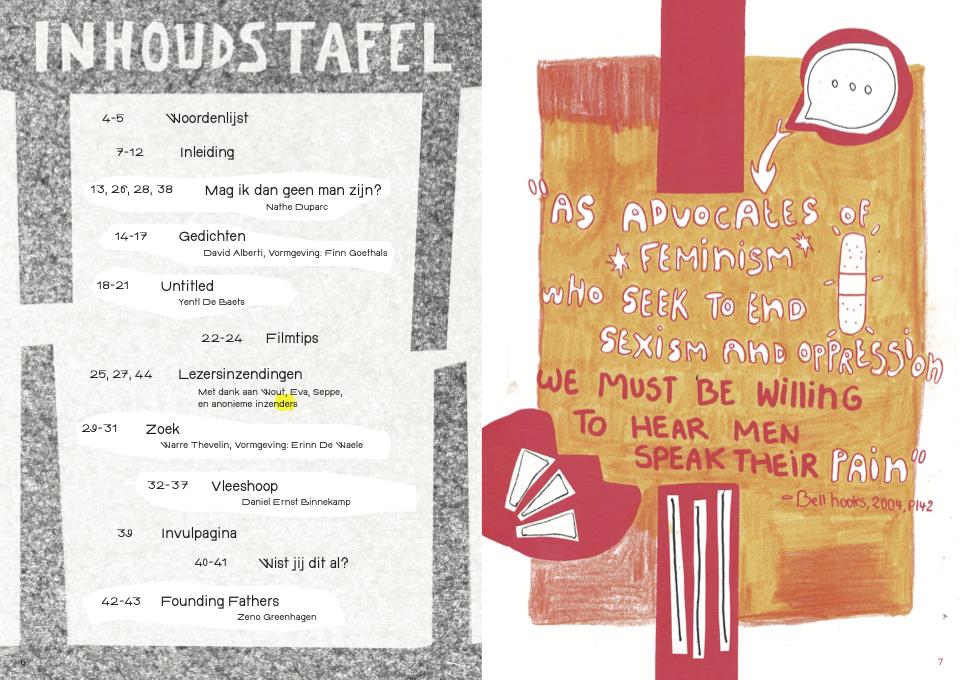 INHOUDSTAFEL
4-5 Woordenlijst
7-12 Inleiding
13, 26, 28, 38 Mag ik dan geen man zijn?
Nathe Duparc
14-17 Gedichten
David Alberti, Vormgeving: Finn Goethals
18-21 Untitled
Yentl De Baets
22-24 Filmtips
25, 27, 44 Lezersinzendingen
Met dank aan Wout, Eva, Seppe,
en anonieme inzenders
29-31 Zoek
Warre Thevelin, Vormgeving: Erinn De Waele
32-37 Vleeshoop
Daniel Ernst Binnekamp
39 Invulpagina
40-41 Wist jij dit al?
42-43 Founding Fathers
Zeno Greenhagen
6
"AS ADVOCATES OF
*FEMINISM*
WHO SEEK TO END
SEXISM AND OPPRESSION
WE MUST BE WILLING
TO HEAR MEN
SPEAK THEIR PAIN"
- Bell hooks, 2004, P142
7